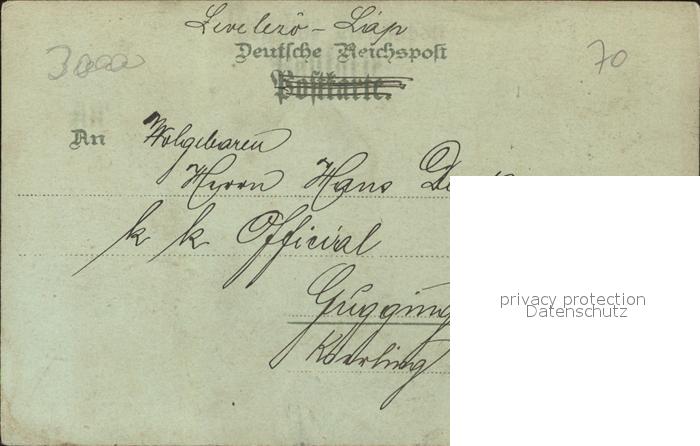 Levelező - Láp
Deutsche Reichspost
Postkarte.
3000
70
An
Wolgebaren
Herrn Hans
k k Official
Gugging
Kierling
privacy protection
Datenschutz